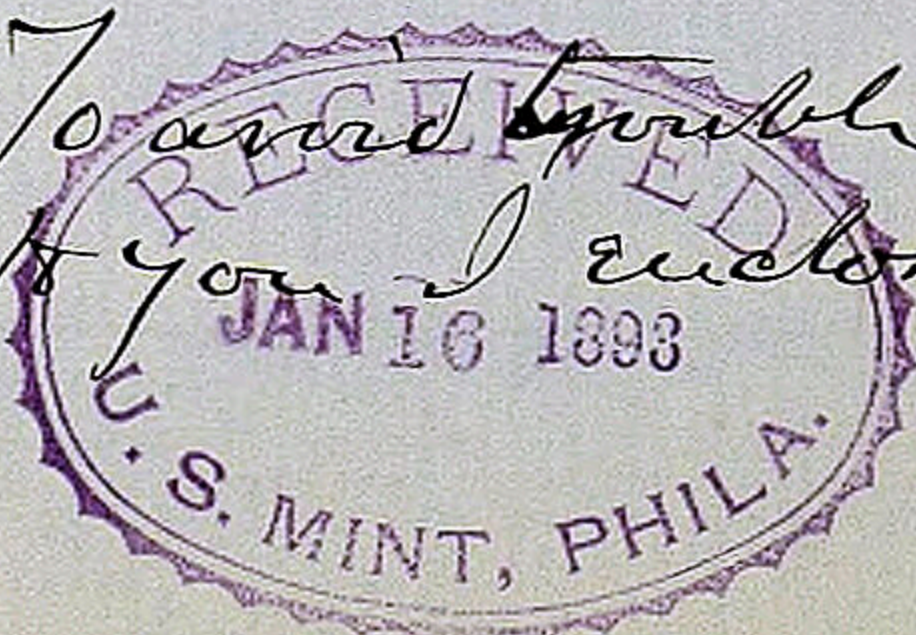 To avoid trouble
to you I enclo
RECEIVED
JAN 16 1893
U. S. MINT, PHILA.